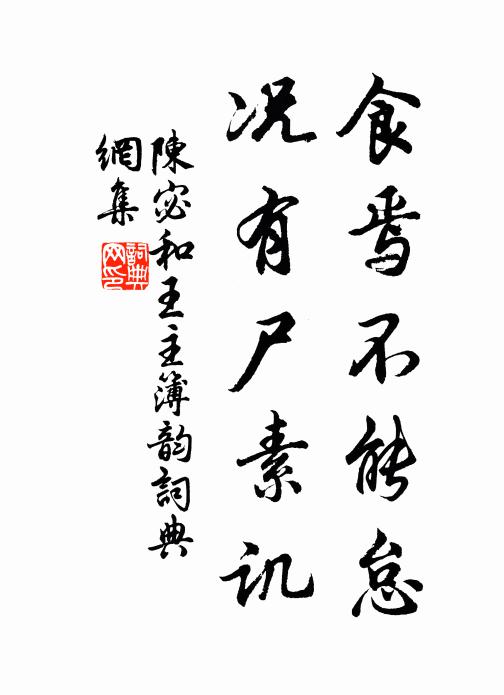 食焉不能怠
况有尸素讥
陳宓和王主簿韵詞典
網集
詞典
网印